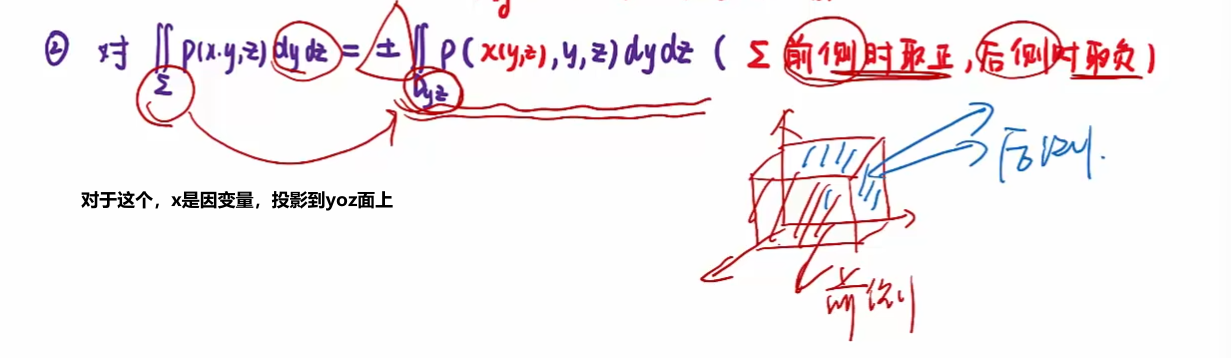 ② 对 ∬_Σ P(x,y,z) dydz = ± ∬_{D_{yz}} P(x(y,z), y, z) dydz ( Σ 前侧时取正, 后侧时取负 )
后侧.
对于这个，x是因变量，投影到yoz面上
前侧